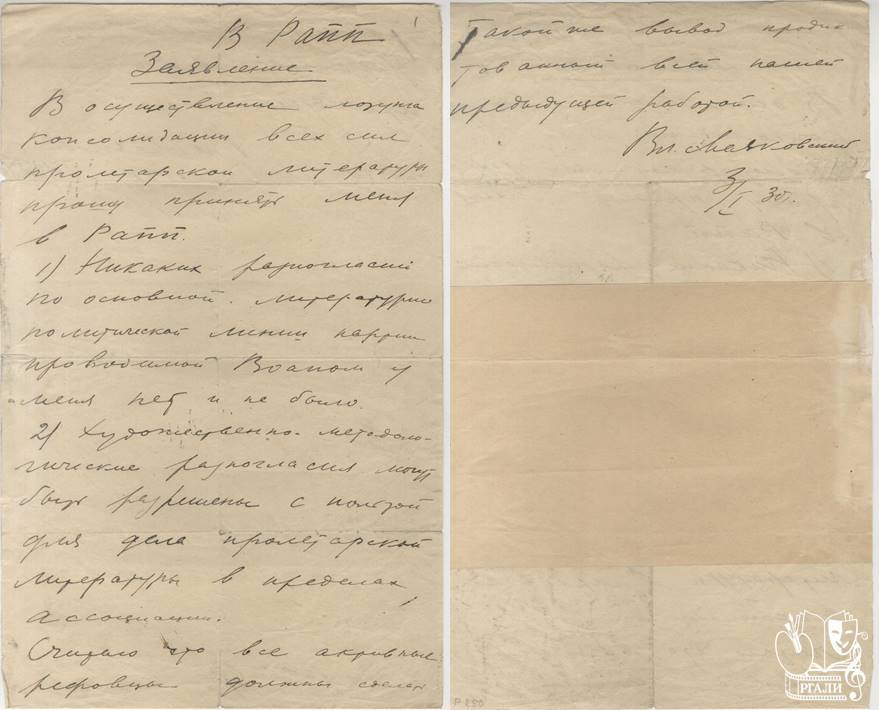 В Рапп
Заявление
В осуществление лозунга
консолидации всех сил
пролетарской литературы
прошу принять меня
в Рапп.
1) Никаких разногласий
по основной литературно
политической линии партии
проводимой Воапом у
меня нет и не было.
2) Художественно-методоло-
гические разногласия могут
быть разрешены с пользой
для дела пролетарской
литературы в пределах
ассоциации.
Считаю что все активные
рефовцы должны сделать
такой же вывод продик
тованный всей нашей
предыдущей работой.
Вл. Маяковский
3/I 30г.
РГАЛИ